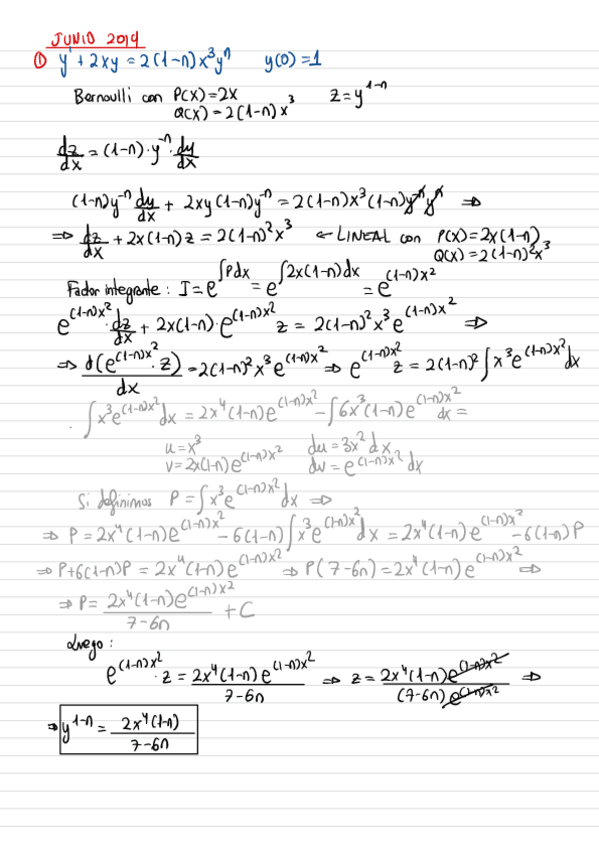 JUNIO 2014
① y' + 2xy = 2(1-n)x³yⁿ y(0)=1
Bernoulli con P(x)=2x z=y^(1-n)
Q(x)=2(1-n)x³
dz/dx = (1-n)·y^(-n)·dy/dx
(1-n)y^(-n) dy/dx + 2xy(1-n)y^(-n) = 2(1-n)x³(1-n)y^(-n)yⁿ ⇒
⇒ dz/dx + 2x(1-n)z = 2(1-n)²x³ ← LINEAL con P(x)=2x(1-n)
Q(x)=2(1-n)²x³
Factor integrante: I = e^(∫Pdx) = e^(∫2x(1-n)dx) = e^((1-n)x²)
e^((1-n)x²)·dz/dx + 2x(1-n)·e^((1-n)x²) z = 2(1-n)²x³e^((1-n)x²) ⇒
⇒ d(e^((1-n)x²)·z)/dx = 2(1-n)²x³e^((1-n)x²) ⇒ e^((1-n)x²) z = 2(1-n)²∫x³e^((1-n)x²)dx
∫x³e^((1-n)x²)dx = 2x⁴(1-n)e^((1-n)x²) - ∫6x³(1-n)e^((1-n)x²)dx =
u=x³ du=3x²dx
v=2x(1-n)e^((1-n)x²) dv=e^((1-n)x²)dx
Si definimos P=∫x³e^((1-n)x²)dx ⇒
⇒ P = 2x⁴(1-n)e^((1-n)x²) - 6(1-n)∫x³e^((1-n)x²)dx = 2x⁴(1-n)e^((1-n)x²) - 6(1-n)P
⇒ P+6(1-n)P = 2x⁴(1-n)e^((1-n)x²) ⇒ P(7-6n) = 2x⁴(1-n)e^((1-n)x²) ⇒
⇒ P = 2x⁴(1-n)e^((1-n)x²)/(7-6n) + C
Luego:
e^((1-n)x²)·z = 2x⁴(1-n)e^((1-n)x²)/(7-6n) ⇒ z = 2x⁴(1-n)e^((1-n)x²)/((7-6n)e^((1-n)x²)) ⇒
⇒ y^(1-n) = 2x⁴(1-n)/(7-6n)